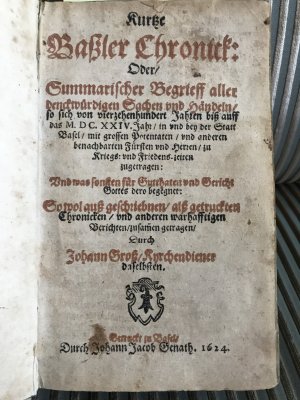 Kurtze
Baßler Chronick:
Oder/
Summarischer Begrieff aller
denckwürdigen Sachen vnd Händeln/
so sich von vierzehenhundert Jahren biß auff
das M. DC. XXIV. Jahr/ in vnd bey der Statt
Basel/ mit grossen Potentaten/ vnd anderen
benachbarten Fürsten vnd Herren/ zu
Kriegs- vnd Friedens-zeiten
zugetragen:
Vnd was sonsten für Gutthaten vnd Gericht
Gottes dero begegnet:
So wol auß geschriebnen/ als getruckten
Chronicken/ vnd anderen warhafftigen
Berichten/ zusamen getragen/
Durch
Johann Groß/ Kyrchendiener
daselbsten.
Getruckt zu Basel/
Durch Johann Jacob Genath. 1624.